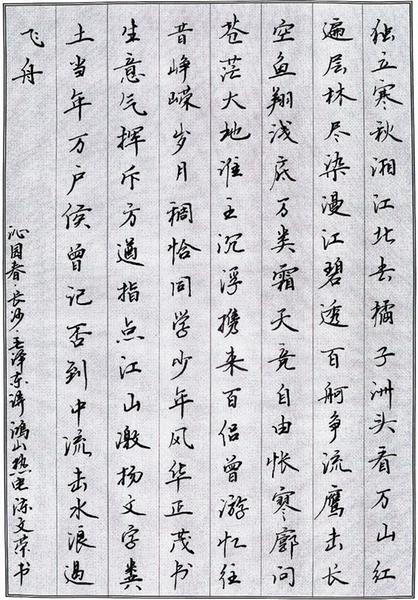 独立寒秋湘江北去橘子洲头看万山红
遍层林尽染漫江碧透百舸争流鹰击长
空鱼翔浅底万类霜天竞自由怅寥廓问
苍茫大地谁主沉浮携来百侣曾游忆往
昔峥嵘岁月稠恰同学少年风华正茂书
生意气挥斥方遒指点江山激扬文字粪
土当年万户侯曾记否到中流击水浪遏
飞舟
沁园春·长沙·毛泽东 鸿山热电 陈文荣书